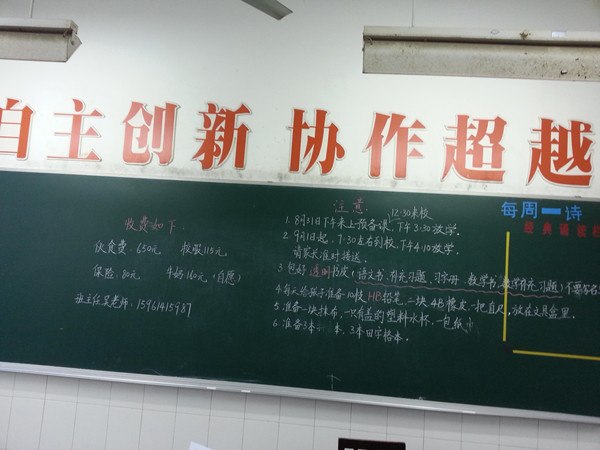 自主创新 协作超越
收费如下:
伙食费: 650元 校服115元
保险: 80元 牛奶160元(自愿)
班主任吴老师: 15961415987
注意: 12:30来校
1. 8月31日下午来上预备课,下午3:30放学。
2. 9月1日起,7:30左右到校,下午4:10放学。
请家长准时接送。
3. 包好透明书皮(语文书、补充习题、习字册、数学书、数学补充习题)不要写名
4. 每天给孩子准备10枝HB铅笔,一块4B橡皮,一把直尺,放在文具盒里。
5. 准备一块抹布,一只有盖的塑料水杯,一包纸
6. 准备3本 本,3本田字格本。
每周一诗
经典诵读